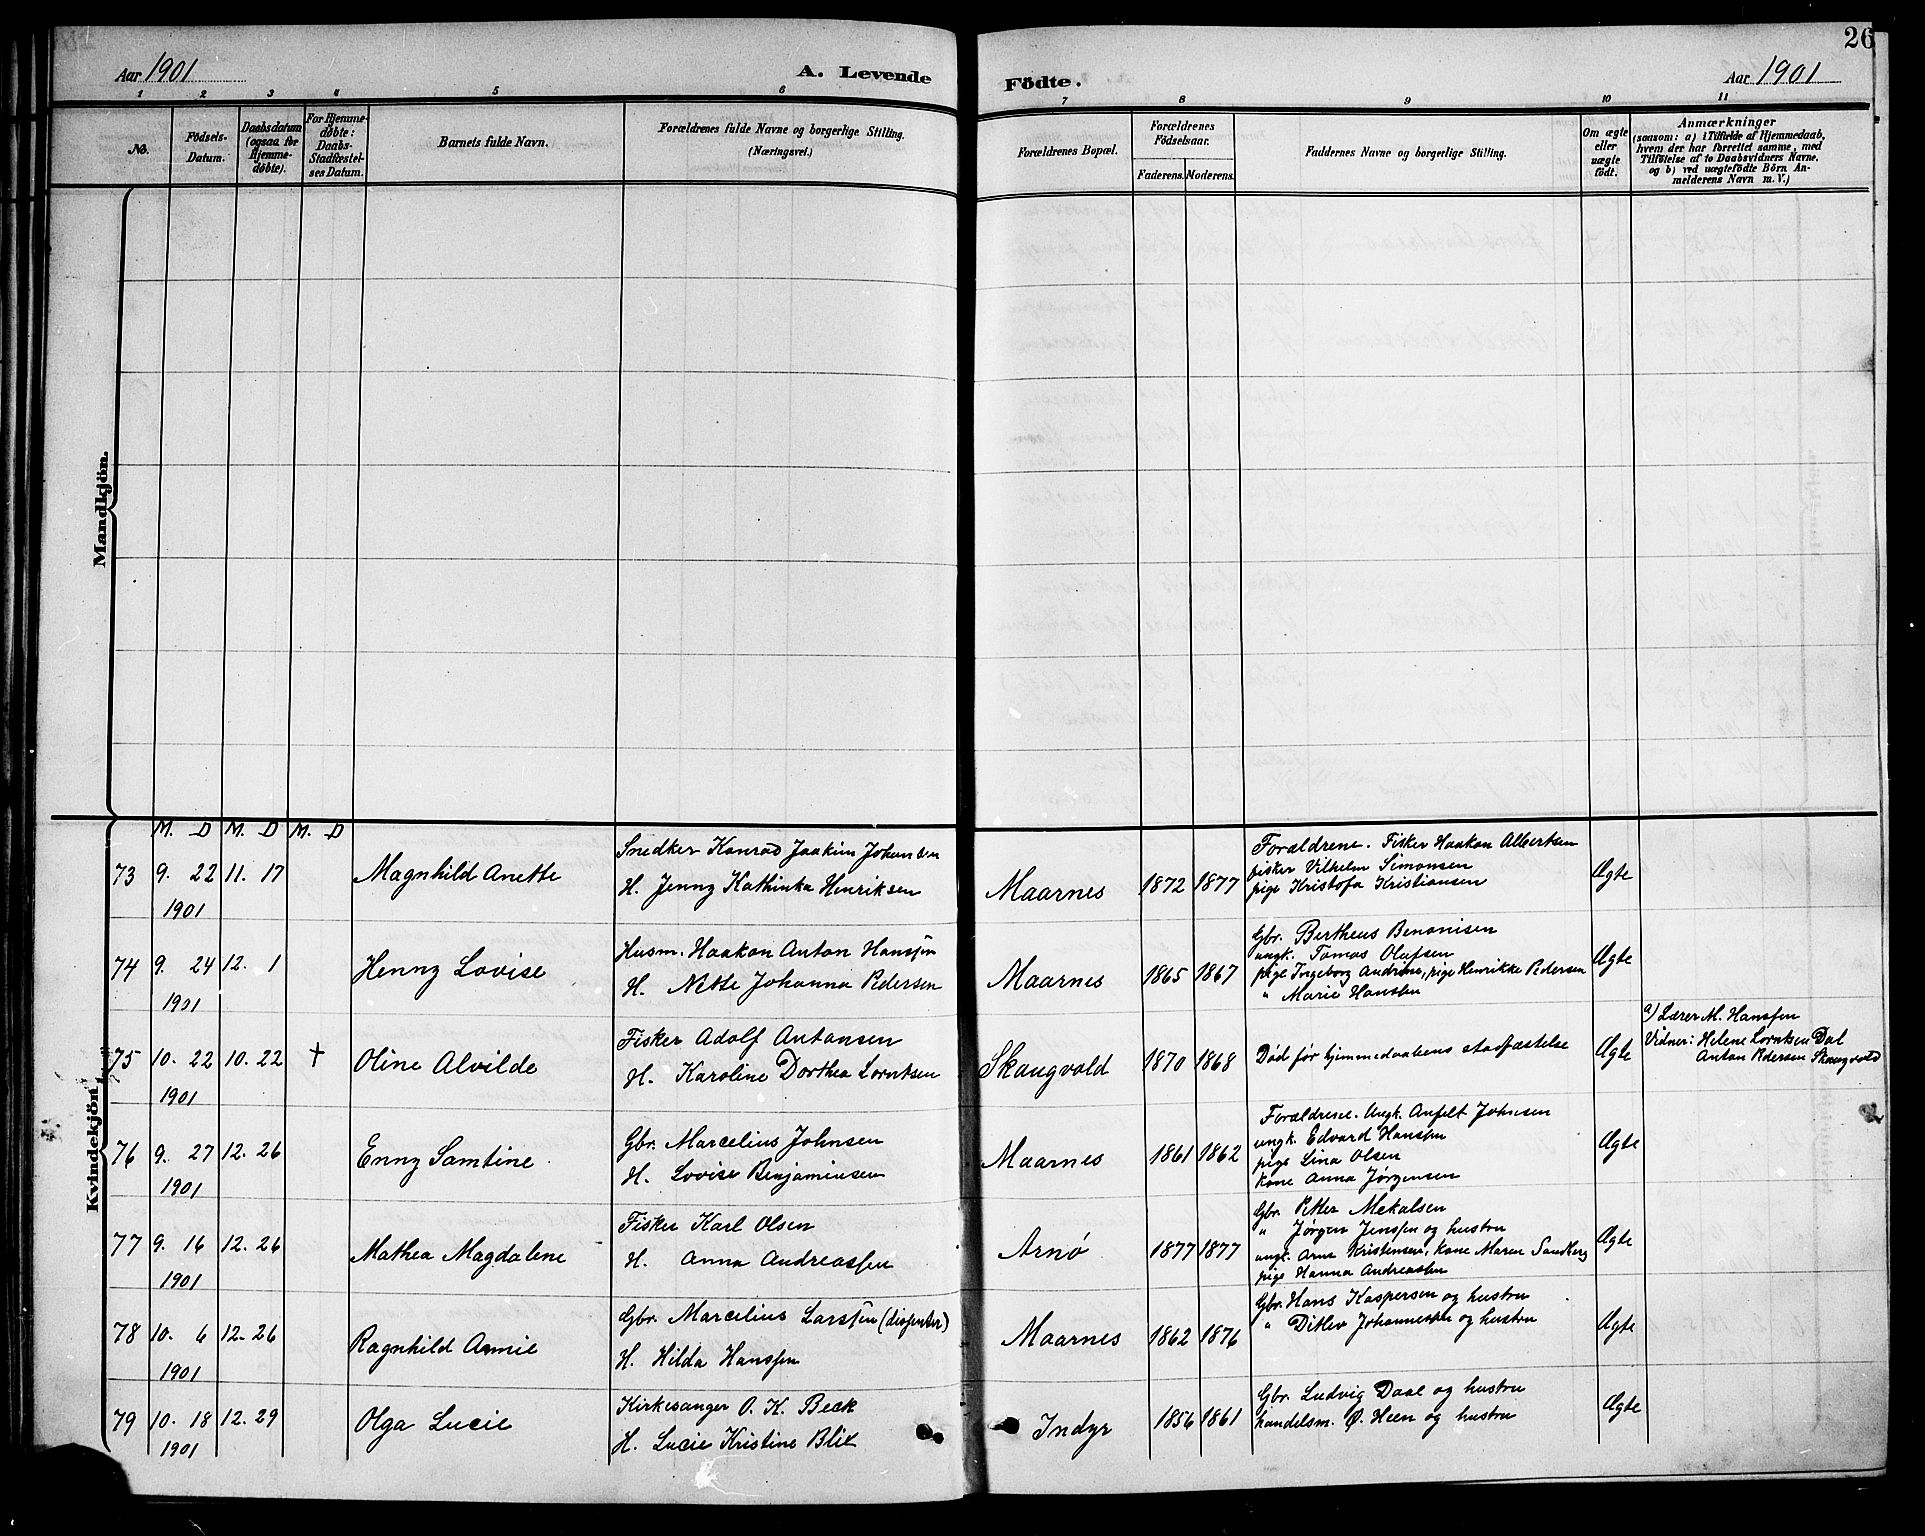 26
Aar 1901
A. Levende
Födte.
Aar 1901
1 2 3 4 5 6 7 8 9 10 11
No.
Födsels-
Datum.
Daabsdatum
(ogsaa for
Hjemme-
døbte).
For Hjemme-
døbte:
Daabs-
Stadfæstel-
ses Datum.
Barnets fulde Navn.
Forældrenes fulde Navne og borgerlige Stilling.
(Næringsvei.)
Forældrenes Bopæl.
Forældrenes
Födselsaar.
Faderens. Moderens.
Faddernes Navne og borgerlige Stilling.
Om ægte
eller
uægte
født.
Anmærkninger
(saasom: a) i Tilfælde af Hjemmedaab,
hvem der har forrettet samme, med
Tilföielse af to Daabsvidners Navne,
og b) ved uægtefödte Börn An-
melderens Navn m. V.)
Mandkjön.
Kvindekjön.
M. D M. D M. D
73 9. 22 11. 17
1901
Magnhild Anette
Snedker Konrad Joakim Johansen
H. Jenny Kathinka Henriksen
Maarnes
1872 1877
Forældrene. Fisker Haakon Albertsen
fisker Vilhelm Simonsen
pige Kristofa Kristiansen
Ægte
74 9. 24 12. 1
1901
Henny Lovise
Husm. Haakon Anton Hanssen
H. Nette Johanna Pedersen
Maarnes
1865 1867
Gbr. Bertheus Benonisen
ungk. Tomas Olufsen
pige Ingeborg Andrine, pige Henrikke Pedersen
" Marie Hanssen
Ægte
75 10. 22 10. 22 †
1901
Oline Alvilde
Fisker Adolf Antonsen
H. Karoline Dorthea Lorntsen
Skaugvold
1870 1868
Død før hjemmedaabens stadfæstelse
Ægte
a) Lærer M. Hanssen
Vidner: Helene Lorntsen Dal
Anton Pedersen Skaugvold
76 9. 27 12. 26
1901
Enny Samtine
Gbr. Marcelius Johnsen
H. Lovise Benjaminsen
Maarnes
1861 1862
Forældrene. Ungk. Anfelt Johnsen
ungk. Edvard Hanssen
pige Lina Olsen
Kone Anna Jørgensen
Ægte
77 9. 16 12. 26
1901
Mathea Magdalene
Fisker Karl Olsen
H. Anna Andreassen
Arnø
1877 1877
Gbr. Petter Mekalsen
" Jørgen Jenssen og hustru
ungk. Arne Kristensen, Kone Maren Sandberg
pige Hanna Andreassen
Ægte
78 10. 6 12. 26
1901
Ragnhild Annie
Gbr. Marcelius Larssen (dissenter)
H. Hilda Hanssen
Maarnes
1862 1876
Gbr. Hans Kaspersen og hustru
" Ditlev Johannessen og hustru
Ægte
79 10. 18 12. 29
1901
Olga Lucie
Kirkesanger O. K. Beck
H. Lucie Kristine Blix
Indyr
1856 1861
Gbr. Ludvig Daae og hustru
handelsm. Ø. Heen og hustru
Ægte